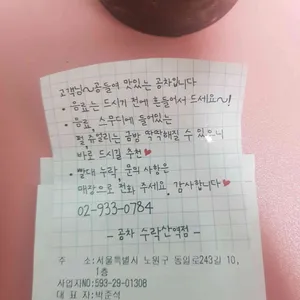 고객님~ 공들여 맛있는 공차입니다
• 음료는 드시기 전에 흔들어서 드세요~!
• 음료, 스무디에 들어있는
펄, 쥬얼리는 금방 딱딱해질 수 있으니
바로 드시길 추천♥
• 빨대 누락, 문의 사항은
매장으로 전화 주세요. 감사합니다♥
02-933-0784
- 공차 수락산역점 -
주 소:서울특별시 노원구 동일로243길 10,
1층
사업자NO:593-29-01308
대 표 자:박준석